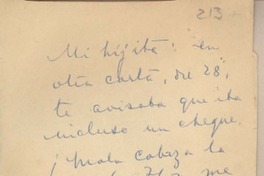 213
Mi hijita: en
otra carta, de 28,
te avisaba que iba
incluso un cheque.
¡Mala cabeza la
me